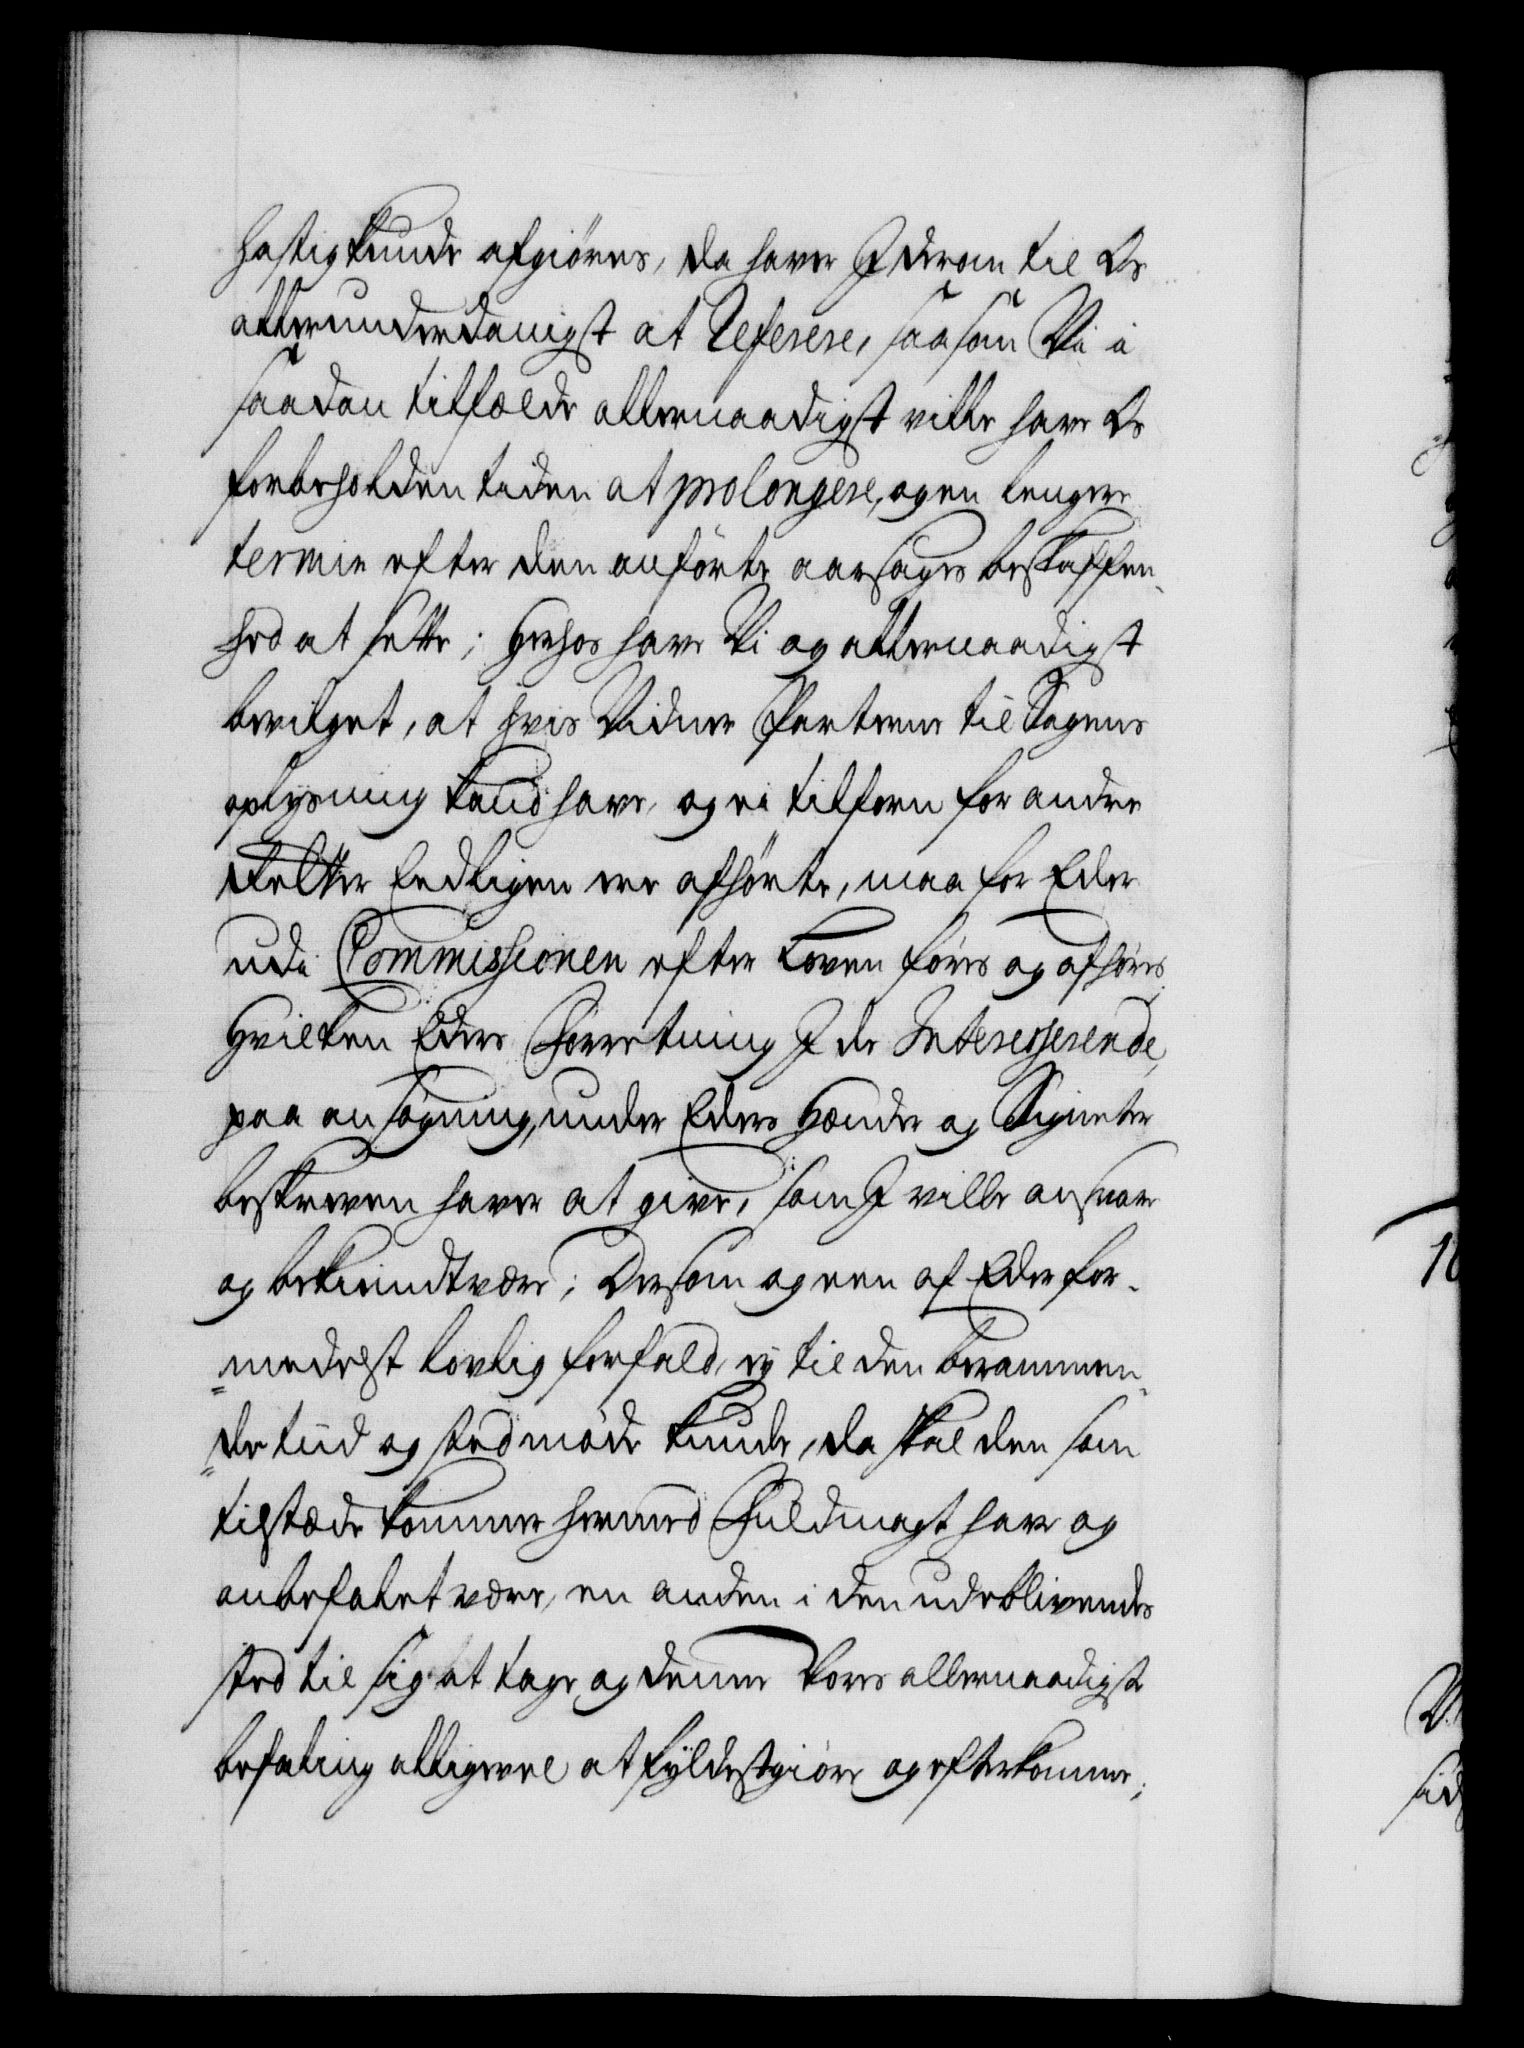 hastig kunde afgiöres, da haver I derom til Os
allerunderdanigst at Referere, saasom Vi i
saadan tilfælde allernaadigst ville have Os
forbeholden tiden at prolongere, og en lengere
termin efter den anförte aarsages beskaffen-
hed at sætte; Herhos have Vi og allernaadigst
bevilget, at hvis Vidner Parterne til Sagens
oplysning kand have, og ei tilforn for andre
Retter Eedligen ere afhörte, maa for Eder
udi Commissionen efter Loven föres og afhöres,
Hvilken Eders Forretning I de Interesserende,
paa ansögning, under Eders Hænder og Signeter
beskreven haver at give, som I ville ansvare
og bekiendt være; Dersom og een af Eder for-
medelst lovlig forfald, ey til den berammen-
de tiid og sted möde kunde, da skal den som
tilstæde kommer hermed Fuldmagt have og
anbefalet være, en anden i den udeblivendes
sted til sig at tage og denne Vores allernaadigste
befaling alligevel at fyldestgiöre og efterkomme;